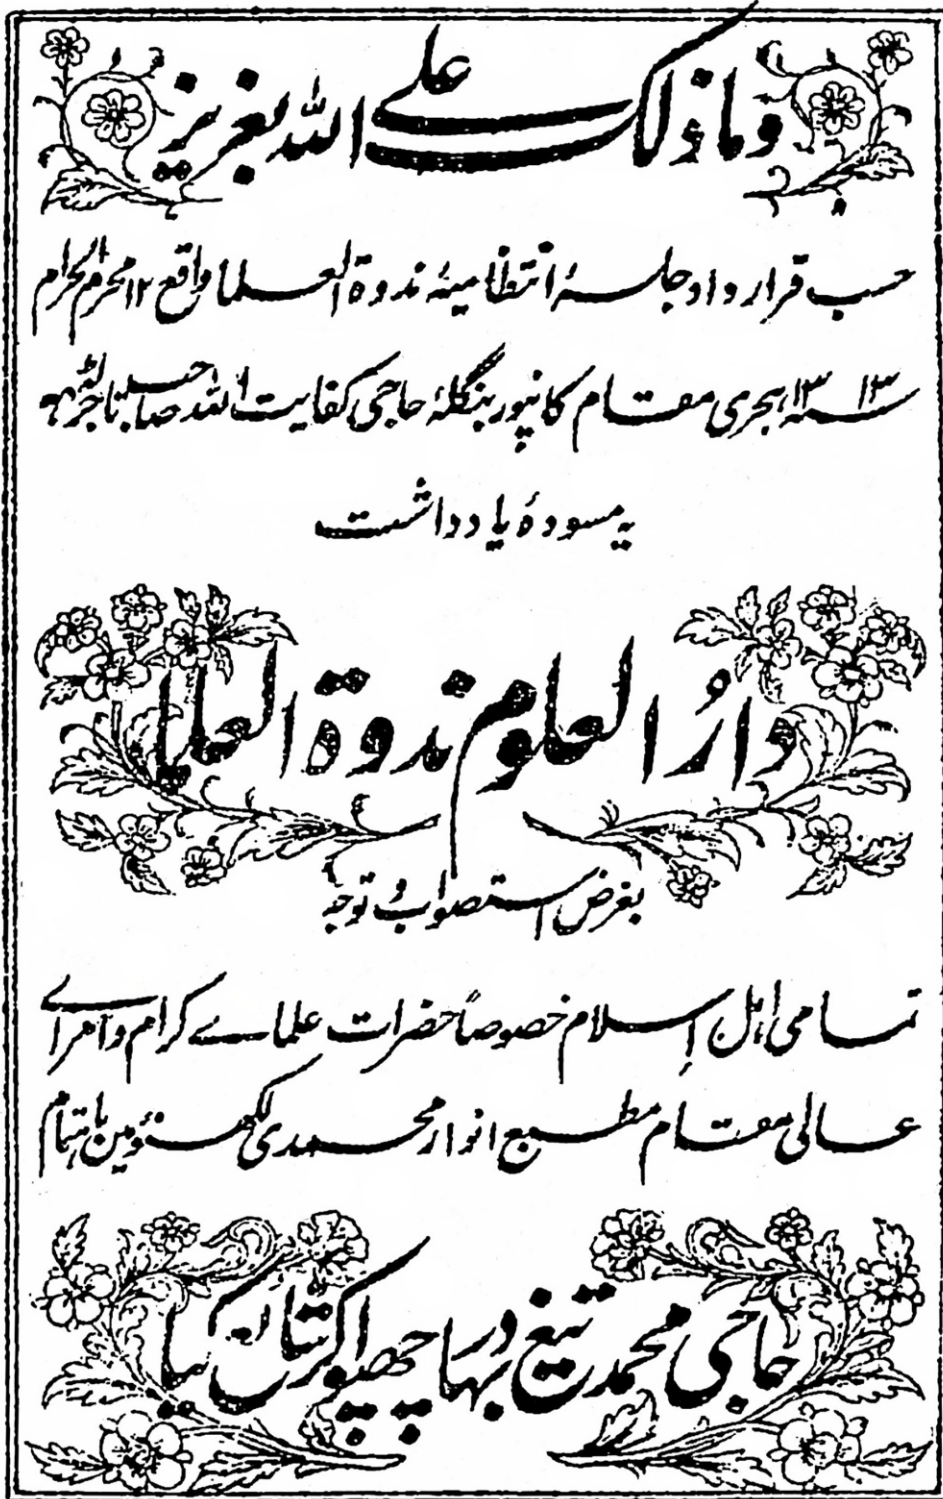 وما ذلک علے اللہ بعزیز
حسب قرارداد جلسۂ انتظامیۂ ندوۃ العلما واقع ۱۲ محرم الحرام
۱۳۱۳ سنہ ہجری مقام کانپور بنگلۂ حاجی کفایت اللہ صاحب تاجر
یہ مسودۂ یادداشت
دارُ العلوم ندوۃ العلما
بغرض استصواب و توجہ
تمامی اہل اِسلام خصوصاً حضرات علماے کرام و امراے
عالی مقام مطبع انوار محمدی لکھنؤ مین باہتمام
حاجی محمد تیغ بہادر چھپوا کر شائع کیا